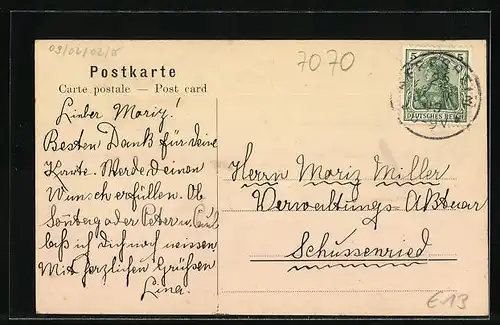 03/02/02/8
7070
Postkarte
Carte postale — Post card
5 5
DEUTSCHES REICH
9V
Lieber Moriz!
Besten Dank für deine
Karte. Werde deinen
Wunsch erfüllen. Ob
Sonntag oder Peter u. Paul
laß ich dich noch wissen.
Mit herzlichen Grüßen
Lina.
Herrn Moriz Miller
Verwaltungs-Aktuar
Schussenried
E13